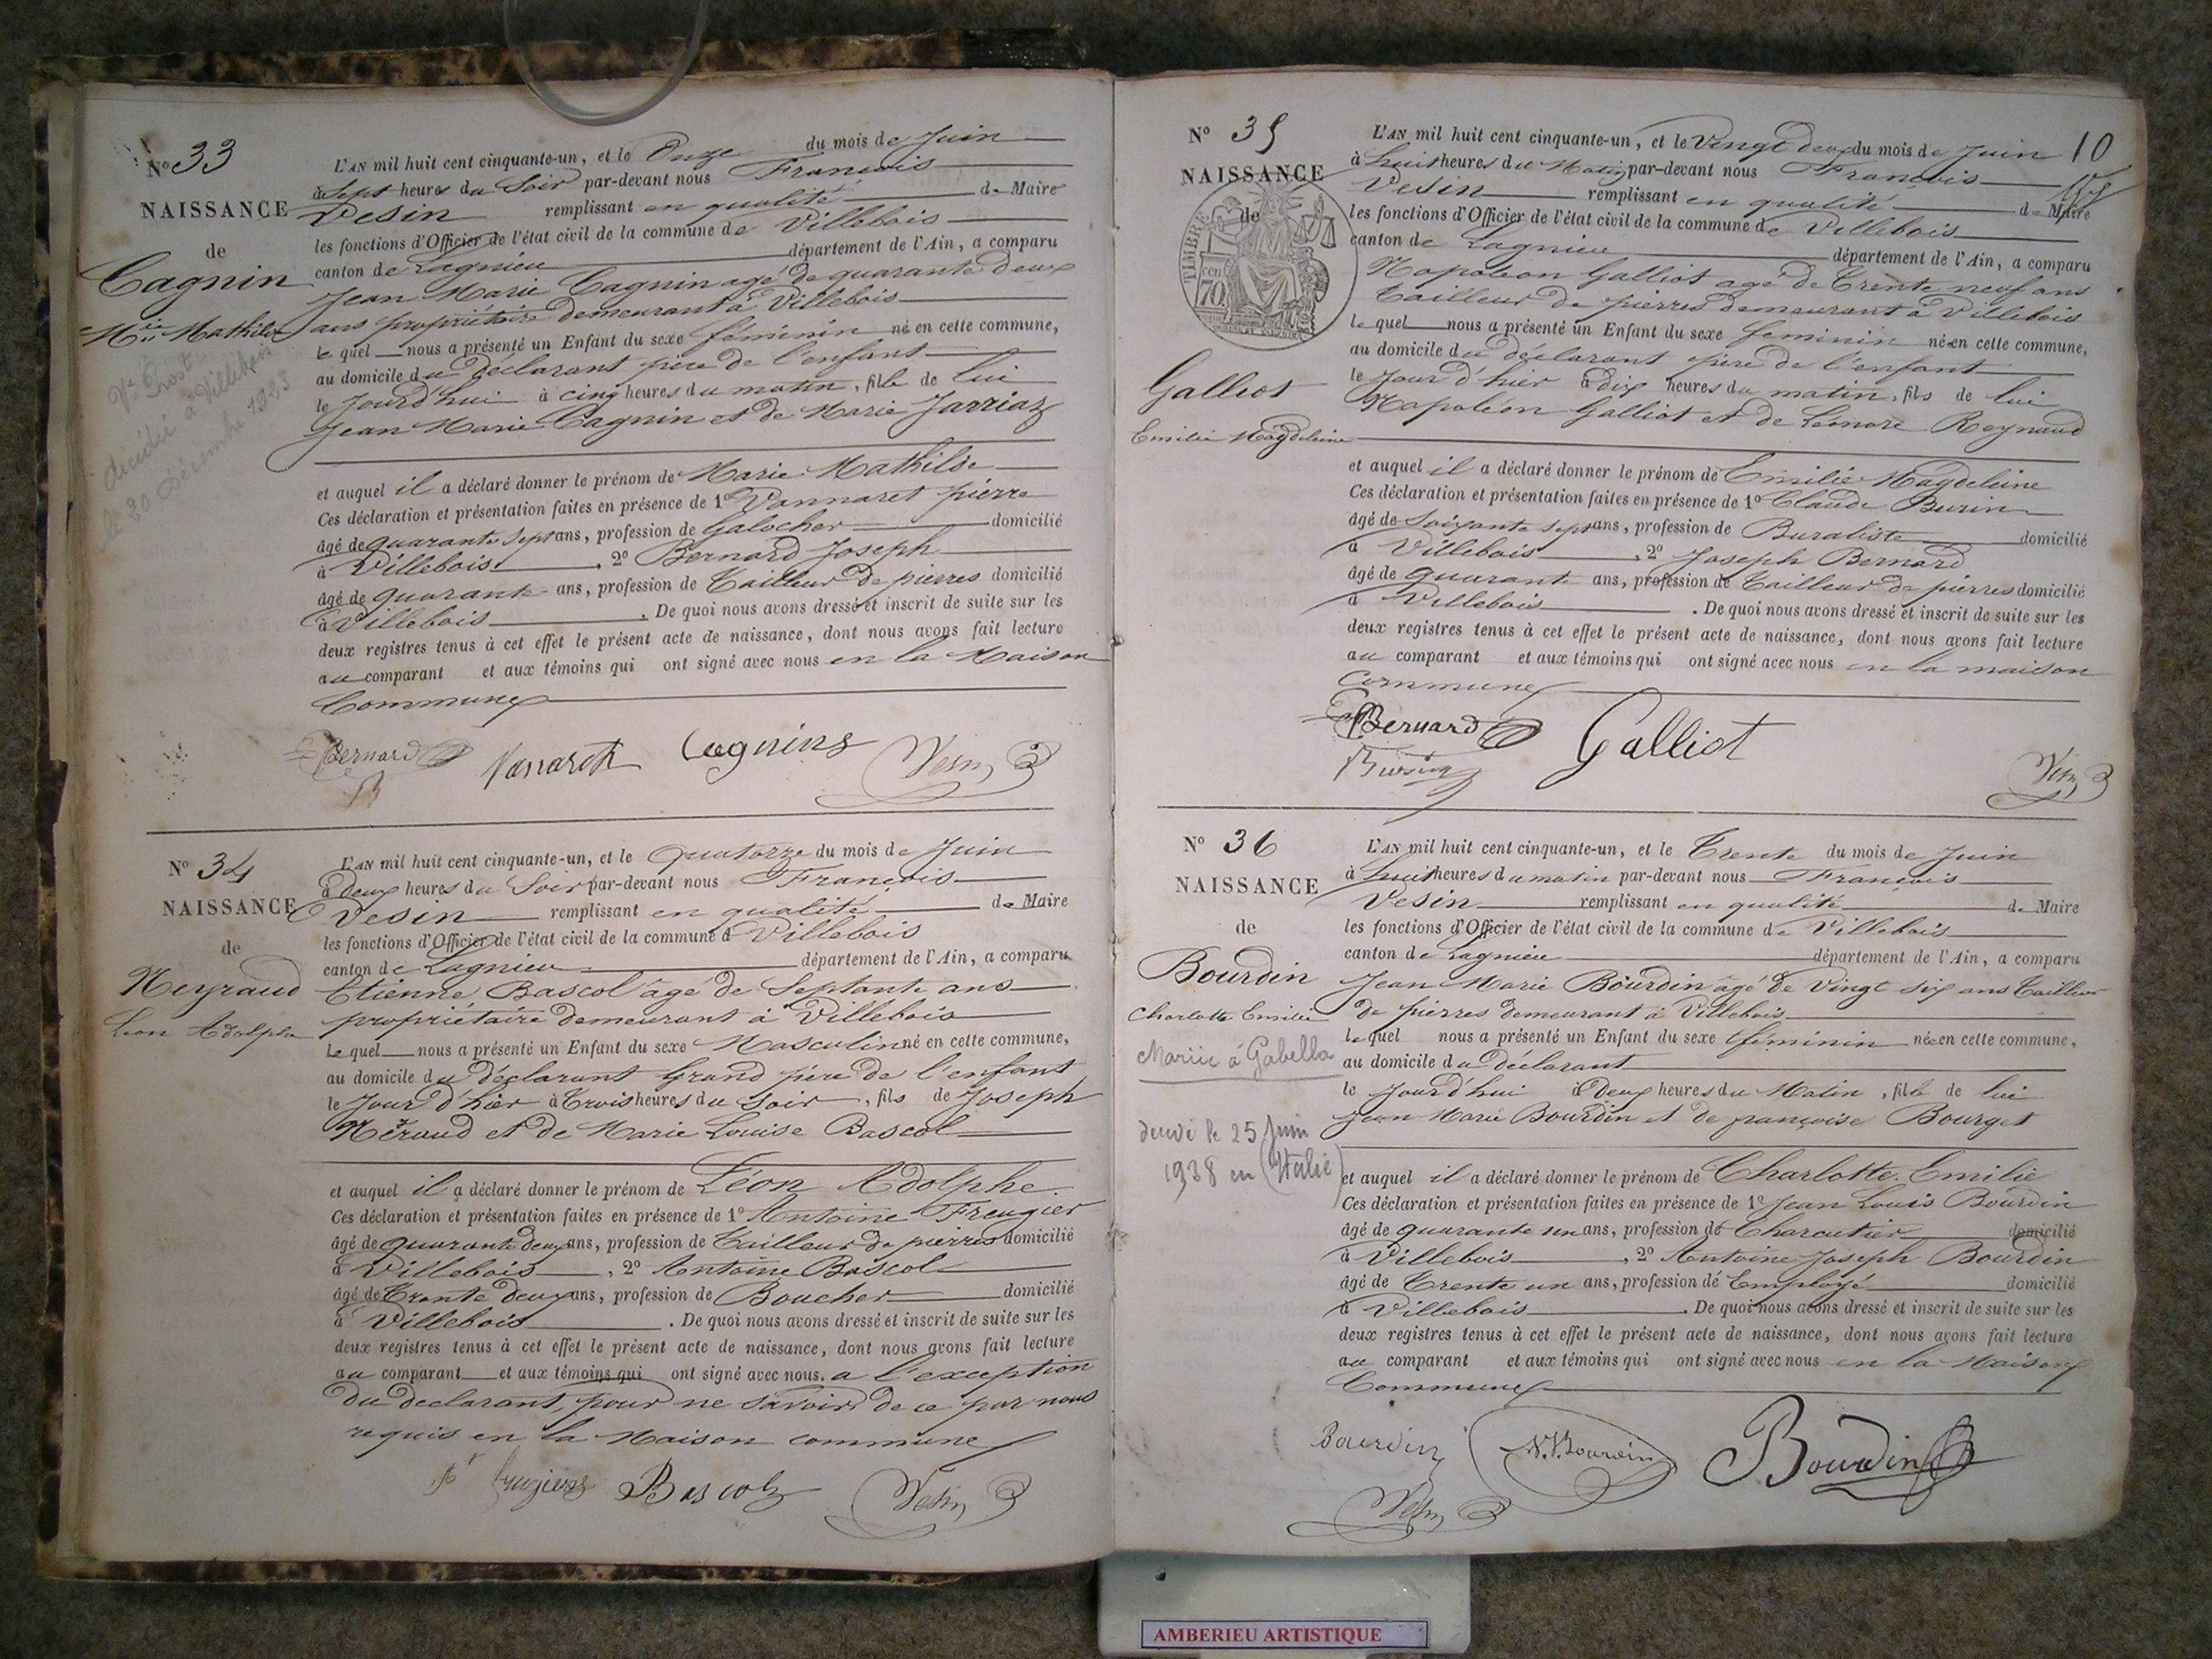 N° 33
NAISSANCE
de
Cagnin
M.ie Mathilde
Ve Prost
décédée à Villebois
le 20 Décembre 1923
L'AN mil huit cent cinquante-un, et le Onze du mois de Juin
à Sept heures du Soir par-devant nous François
Vesin remplissant en qualité de Maire
les fonctions d'Officier de l'état civil de la commune de Villebois
canton de Lagnieu département de l'Ain, a comparu
Jean Marie Cagnin agé de quarante deux
ans propriétaire demeurant à Villebois
le quel nous a présenté un Enfant du sexe féminin né en cette commune,
au domicile du déclarant père de l'enfant
le Jourd'hui à cinq heures du matin, fille de lui
Jean Marie Cagnin et de Marie Jarriaz
et auquel il a déclaré donner le prénom de Marie Mathilde
Ces déclaration et présentation faites en présence de 1° Vannaret pierre
âgé de quarante Sept ans, profession de Galocher domicilié
à Villebois, 2° Bernard Joseph
âgé de quarante ans, profession de Tailleur de pierres domicilié
à Villebois. De quoi nous avons dressé et inscrit de suite sur les
deux registres tenus à cet effet le présent acte de naissance, dont nous avons fait lecture
au comparant et aux témoins qui ont signé avec nous en la Maison
Commune
Bernard Vanaret Cagnins Vesin
N° 34
NAISSANCE
de
Neyraud
Leon Adolphe
L'AN mil huit cent cinquante-un, et le Quatorze du mois de Juin
à deux heures du Soir par-devant nous François
Vesin remplissant en qualité de Maire
les fonctions d'Officier de l'état civil de la commune d Villebois
canton de Lagnieu département de l'Ain, a comparu
Etienne Bascol âgé de Septante ans
propriétaire demeurant à Villebois
Le quel nous a présenté un Enfant du sexe Masculin né en cette commune,
au domicile du déclarant Grand père de l'enfant
le Jour d'hier à trois heures du Soir, fils de Joseph
Néraud et de Marie Louise Bascol
et auquel il a déclaré donner le prénom de Léon Adolphe.
Ces déclaration et présentation faites en présence de 1° Antoine Freugier
âgé de quarante deux ans, profession de Tailleur de pierres domicilié
à Villebois, 2° Antoine Bascol
âgé de Trante deux ans, profession de Boucher domicilié
à Villebois. De quoi nous avons dressé et inscrit de suite sur les
deux registres tenus à cet effet le présent acte de naissance, dont nous avons fait lecture
au comparant et aux témoins qui ont signé avec nous. a l'exception
du declarant, pour ne Savoir de ce par nous
requis en la Maison commune
frugiers Bascol Vesin
N° 35
NAISSANCE
de
TIMBRE
70
CENT
Galliot
Emilie Magdeleine
10
L'AN mil huit cent cinquante-un, et le Vingt deux du mois de Juin
à huit heures du Matin par-devant nous François
Vesin remplissant en qualité de Maire
les fonctions d'Officier de l'état civil de la commune de Villebois
canton de Lagnieu département de l'Ain, a comparu
Napoléon Galliot agé de Trente neuf ans
Tailleur de pierres demeurant à Villebois
le quel nous a présenté un Enfant du sexe feminin née en cette commune,
au domicile du déclarant père de l'enfant
le Jour d'hier à dix heures du matin, fils de lui
Napoléon Galliot et de Lemore Reynaud
et auquel il a déclaré donner le prénom de Emilie Magdeleine
Ces déclaration et présentation faites en présence de 1° Claude Burin
âgé de Soixante Sept ans, profession de Buraliste domicilié
à Villebois, 2° Joseph Bernard
âgé de quarante ans, profession de Tailleur de pierres domicilié
à Villebois. De quoi nous avons dressé et inscrit de suite sur les
deux registres tenus à cet effet le présent acte de naissance, dont nous avons fait lecture
au comparant et aux témoins qui ont signé avec nous en la maison
Commune
Bernard Galliot
Burin Vesin
N° 36
NAISSANCE
de
Bourdin
Charlotte Emilie
Mariée à Gabella
décédé le 25 Juin
1938 en (Italie)
L'AN mil huit cent cinquante-un, et le Trente du mois de Juin
à huit heures du matin par-devant nous François
Vesin remplissant en qualité de Maire
les fonctions d'Officier de l'état civil de la commune de Villebois
canton de Lagnieu département de l'Ain, a comparu
Jean Marie Bourdin âgé de Vingt six ans Tailleur
de pierres demeurant à Villebois
le quel nous a présenté un Enfant du sexe féminin née en cette commune,
au domicile du déclarant
le Jourd'hui à Deux heures du Matin, fille de lui
Jean Marie Bourdin et de françoise Bourget
et auquel il a déclaré donner le prénom de Charlotte Emilie
Ces déclaration et présentation faites en présence de 1° Jean Louis Bourdin
âgé de quarante un ans, profession de Charcutier domicilié
à Villebois, 2° Antoine Joseph Bourdin
âgé de Trente un ans, profession de Employé domicilié
à Villebois. De quoi nous avons dressé et inscrit de suite sur les
deux registres tenus à cet effet le présent acte de naissance, dont nous avons fait lecture
au comparant et aux témoins qui ont signé avec nous en la Maison
Commune
Bourdin Bourdin Bourdin
Vesin
AMBERIEU ARTISTIQUE